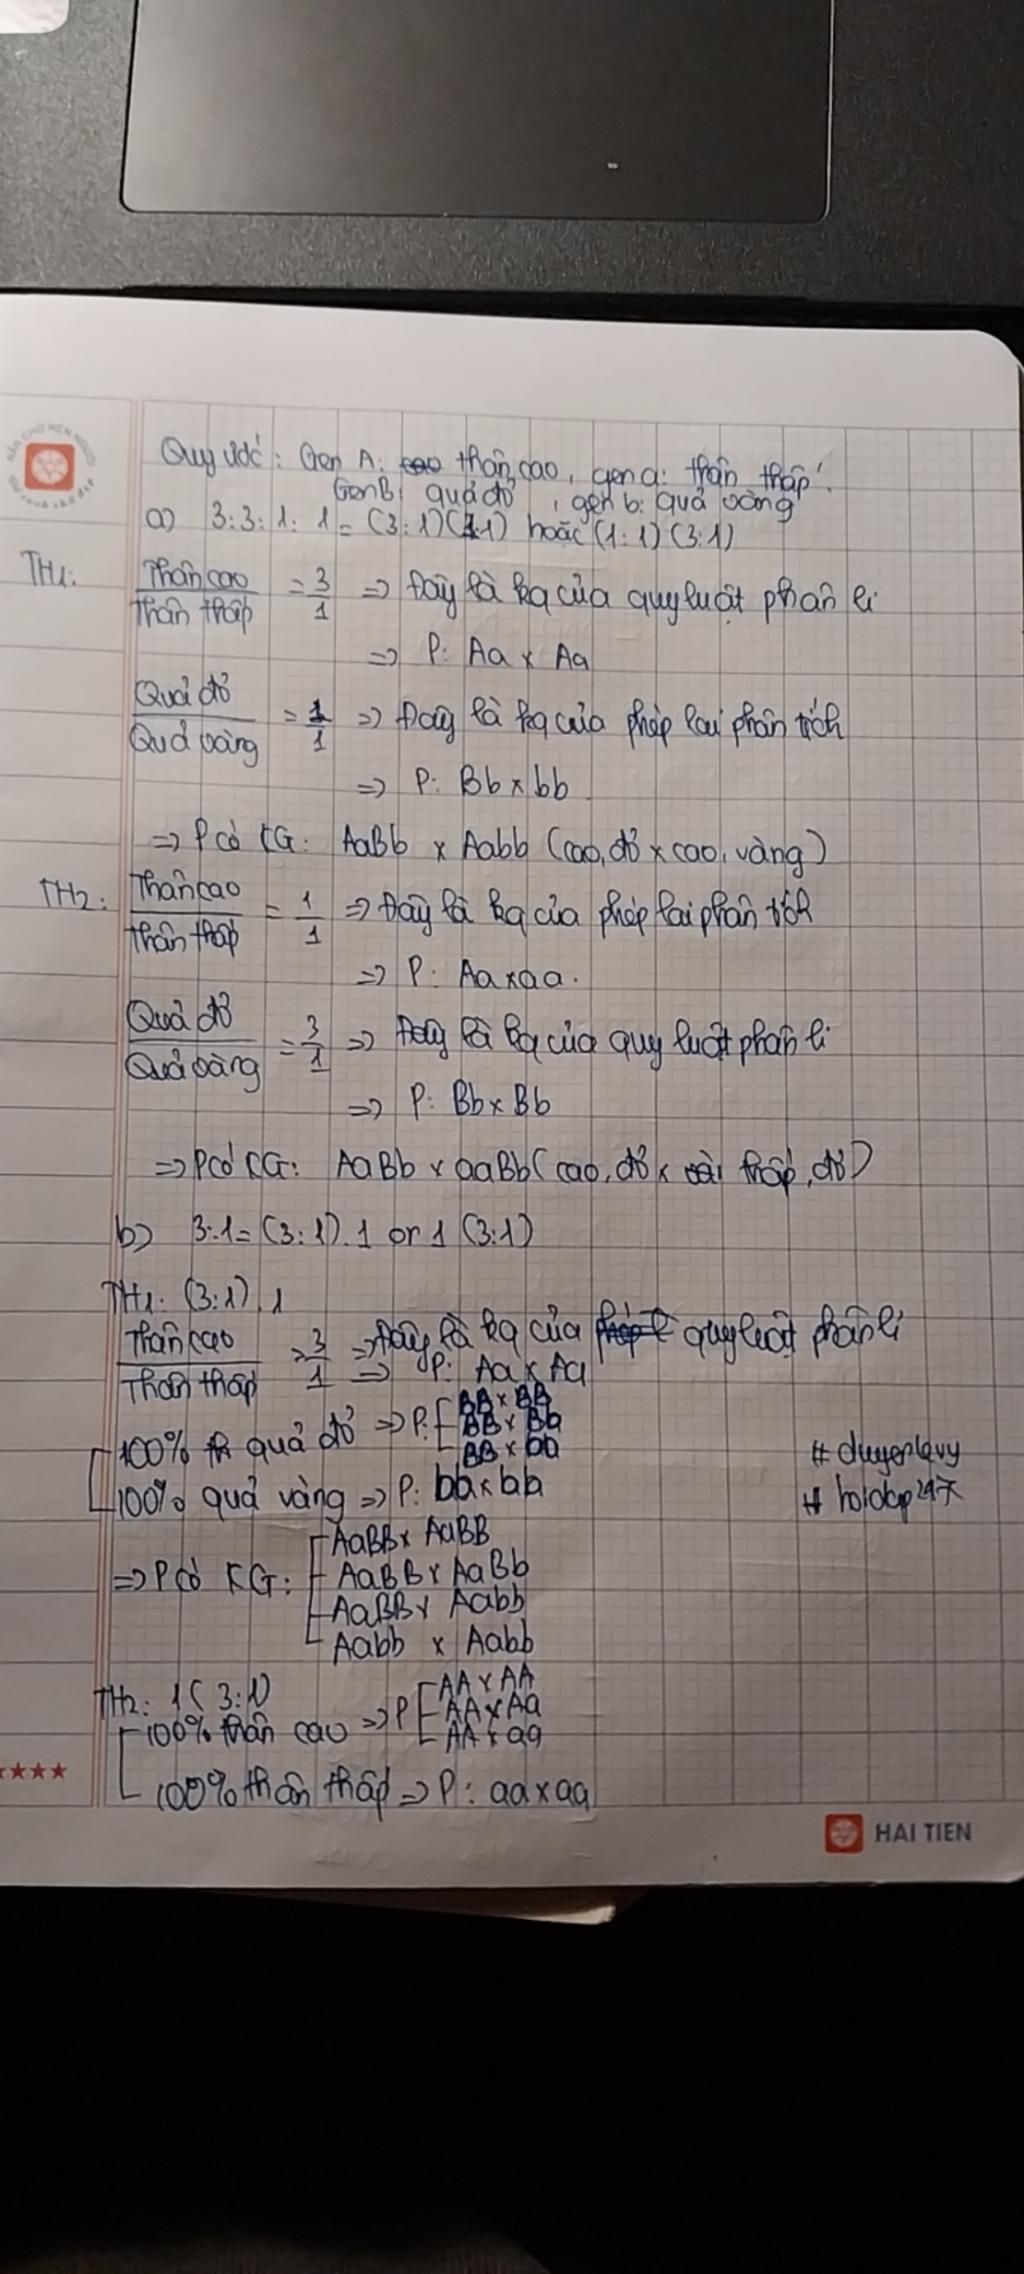 Quy ước: Gen A: cao thân cao, gen a: thân thấp.
Gen B: quả đỏ, gen b: quả vàng
a) 3:3:1:1 = (3:1)(1:1) hoặc (1:1)(3:1)
TH1: Thân cao / Thân thấp = 3/1 => Đây là kq của quy luật phân li
=> P: Aa x Aa
Quả đỏ / Quả vàng = 1/1 => Đây là kq của phép lai phân tích
=> P: Bb x bb
=> P có KG: AaBb x Aabb (cao, đỏ x cao, vàng)
TH2: Thân cao / Thân thấp = 1/1 => Đây là kq của phép lai phân tích
=> P: Aa x aa.
Quả đỏ / Quả vàng = 3/1 => Đây là kq của quy luật phân li
=> P: Bb x Bb
=> P có KG: AaBb x aaBb (cao, đỏ x thấp, đỏ)
b) 3:1 = (3:1).1 or 1(3:1)
TH1: (3:1).1
Thân cao / Thân thấp = 3/1 => Đây là kq của quy luật phân li
=> P: Aa x Aa
100% quả đỏ => P: [ BB x BB
BB x Bb
BB x bb
100% quả vàng => P: bb x bb
# duyenlavy
# hoidap247
=> P có KG: [ AaBB x AaBB
AaBB x AaBb
AaBB x Aabb
Aabb x Aabb
TH2: 1(3:1)
100% thân cao => P [ AA x AA
AA x Aa
AA x aa
100% thân thấp => P: aa x aa
★★★★
HAI TIEN